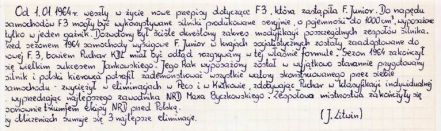 Od 1.01 1964r. weszły w życie nowe przepisy dotyczące F3, która zastąpiła F. Junior. Do napędu
samochodów F3 mogły być wykorzystywane silniki produkowane seryjnie, o pojemności do 1000 cm³, wyposażone
tylko w jeden gaźnik. Dozwolony był ściśle określony zakres modyfikacji poszczególnych zespołów silnika.
Przed sezonem 1964 samochody wyścigowe F. Junior w krajach socjalistycznych zostały zaadaptowane do
nowej F3, bowiem Puchar miał być odtąd rozgrywany w tej właśnie formule. Sezon 1964 zakończył
się wielkim sukcesem Jankowskiego. Jego Rak wyposażony został w wyjątkowo starannie przygotowany
silnik i polski kierowca potrafił zademonstrować wszystkie walory skonstruowanego przez siebie
samochodu - zwyciężył w eliminacjach w Pecs i w Katowicach, zdobywając Puchar w klasyfikacji indywidualnej
- wyprzedzając najlepszego zawodnika NRD Maxa Byczkowskiego. Zespołowe mistrzostwa zakończyły się
ponownie triumfem ekipy NRD przed Polską.
W obliczeniach sumuje się 3 najlepsze eliminacje. (J. Litwin)